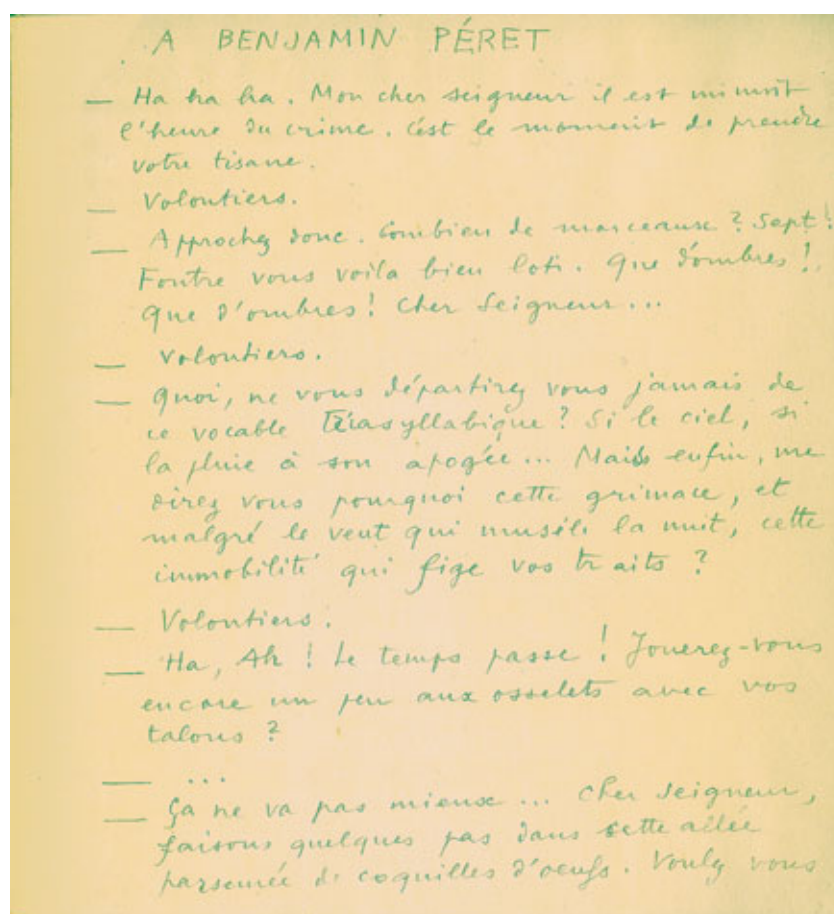 A BENJAMIN PÉRET
— Ha ha ha. Mon cher seigneur il est minuit
l'heure du crime. C'est le moment de prendre
votre tisane.
— Volontiers.
— Approchez donc. Combien de morceaux ? Sept !
Foutre vous voila bien loti. Que d'ombres !
Que d'ombres ! Cher Seigneur...
— Volontiers.
— Quoi, ne vous départirez vous jamais de
ce vocable trasyllabique ? Si le ciel, si
la pluie à son apogée... Mais enfin, me
direz vous pourquoi cette grimace, et
malgré le vent qui musèle la nuit, cette
immobilité qui fige vos traits ?
— Volontiers.
— Ha, Ah ! Le temps passe ! Jouerez-vous
encore un peu aux osselets avec vos
talons ?
— ...
— Ça ne va pas mieux... Cher Seigneur,
faisons quelques pas dans cette allée
parsemée de coquilles d'oeufs. Voulez vous